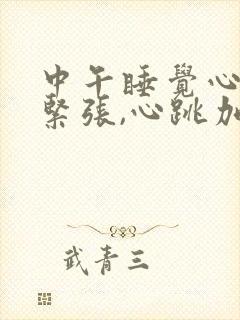 中午睡覺心
緊張,心跳加
武青三